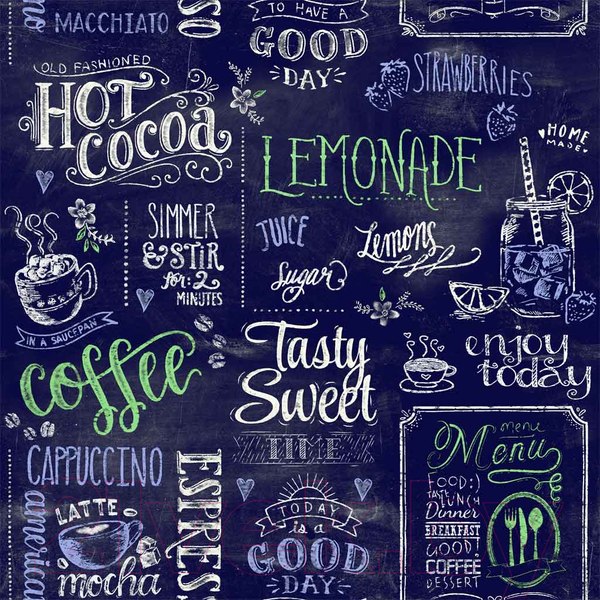 no
MACCHIATO
SO
TO HAVE A
GOOD
DAY
STRAWBERRIES
OLD FASHIONED
HOT
COCOA
HOME
MADE
LEMONADE
SIMMER
& STIR
for: 2
MINUTES
JUICE
Lemons
Sugar
IN A SAUCEPAN
coffee
Tasty
Sweet
TIME
enjoy
today
CAPPUCCINO
ESPRES
american
LATTE
mocha
TODAY
is a
GOOD
DAY
menu
Menu
FOOD:)
TASTY LUNCH
Dinner
BREAKFAST
GOOD!
COFFEE
DESSERT